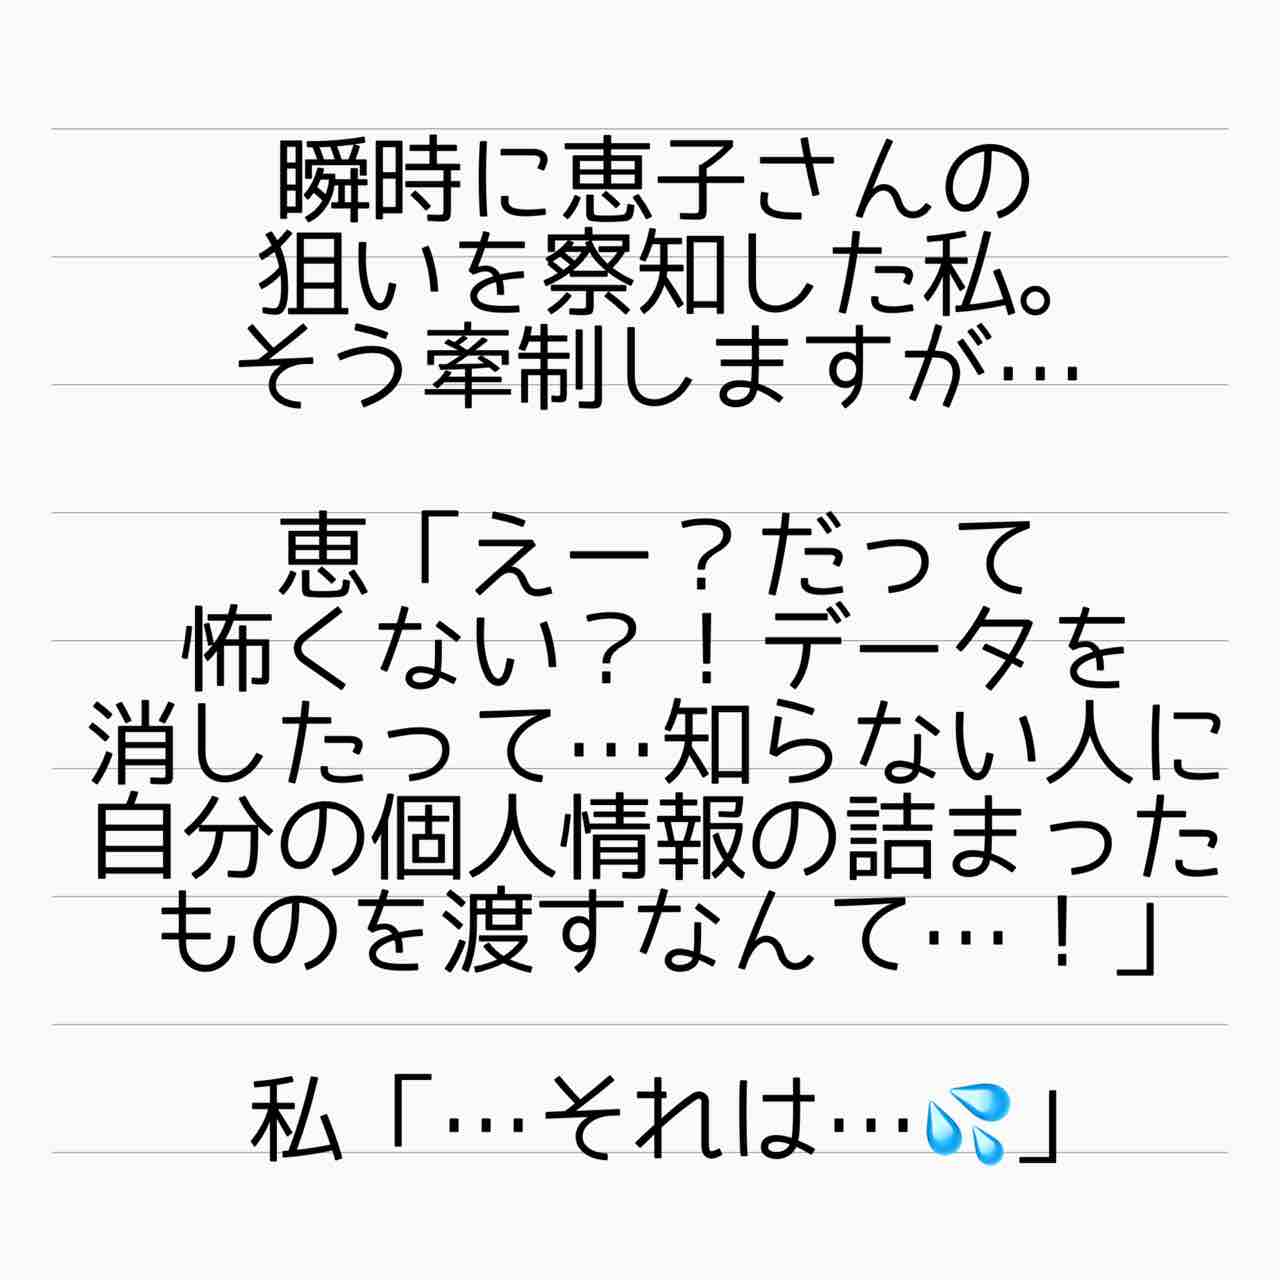 瞬時に恵子さんの
狙いを察知した私。
そう牽制しますが…
恵「えー？だって
怖くない？！データを
消したって…知らない人に
自分の個人情報の詰まった
ものを渡すなんて…！」
私「…それは…💦」